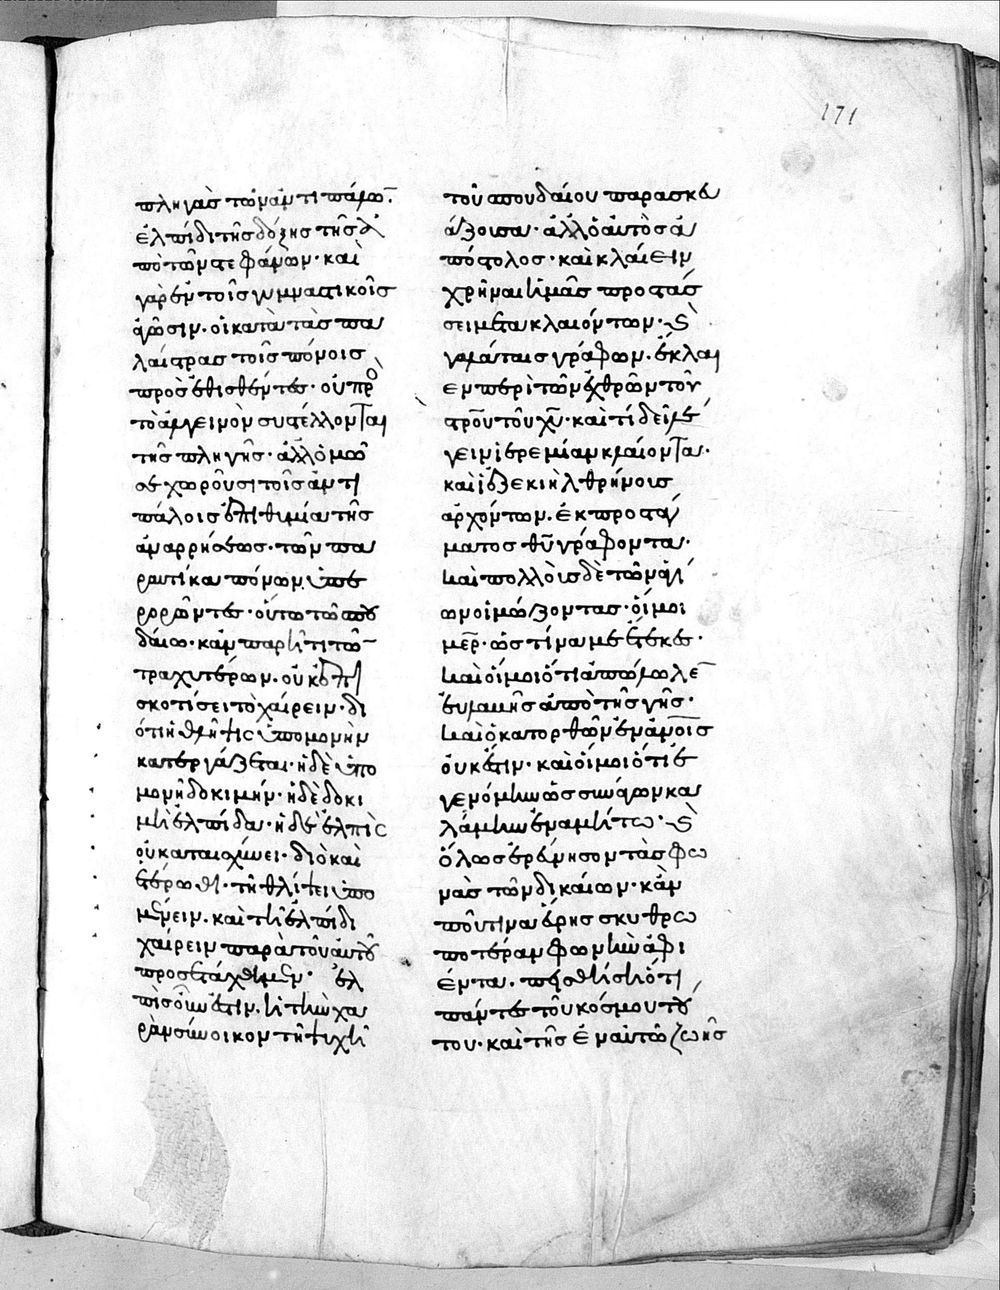 171
πληγὰς τῶν ἀντιπάλω̅ν.
ἐλπίδι τῆς δόξης τῆς ἀ
πὸ τῶν στεφάνων· καὶ
γὰρ ἐν τοῖς γυμναστικοῖς
ἀγῶσιν. οἱ κατὰ τὰς πα
λαίστρας τοῖς πόνοις
προσεθισθέντες· οὐ πρὸ
τὸ ἀλγεινὸν συστέλλονται
τῆς πληγῆς· ἀλλ' ὁμό
σε χωροῦσι τοῖς ἀντι
πάλοις ἐπιθυμία τῆς
ἀναρρήσεως· τῶν πα
ραυτίκα πόνων ὑπε
ρορῶντες· οὕτω τῷ σπου
δαίω· κἄν παρῆ τι τῶ
τραχυτέρων. οὐκ ἐπι
σκοτίσει τὸ χαίρειν· δι
ότι ἡ θλῆψις ὑπομονὴν
κατεργάζεται· ἡ δὲ ὑπο
μονὴ δοκιμήν· ἡ δὲ δοκι
μὴ ἐλπίδα· ἡ δὲ ἐλπὶς
οὐ καταισχύνει· διὸ καὶ
ἑτέρωθι· τῇ θλίψει ὑπο
μένειν. καὶ τῇ ἐλπίδι
χαίρειν παρὰ τοῦ αὐτοῦ
προσετάχθημεν· ἐλ
πὶς οὖν ἐστιν. ἡ τὴν χα
ρὰν σύνοικον τῆ ψυχῆ
τοῦ σπουδαίου παρασκευ
άζουσα· ἀλλ' ὁ αὐτὸς ἀ
πόστολος· καὶ κλαίειν
χρῆναι ἡμᾶς προστάσ
σει μετα κλαιόντων· καὶ
γαλάταις γράφων. ἔκλαι
εν περὶ τῶν ἐχθρῶν τοῦ
στρου τοῦ χυ· καὶ τί δεῖ λέ
γειν ἱερεμίαν κλαίοντα·
καὶ ἰεζεκιὴλ θρήνοις
ἀρχόντων. ἐκ προστά
ματος θυ γράφοντα·
καὶ πολλοὺς δὲ τῶν ἁγί
ων οἰμώζοντας· οἴμοι
μερ· ὡς τίνα με ἔτεκες·
καὶ οἴμοι ὅτι ἀπόλωλε
εὐλαβὴς ἀπὸ τῆς γῆς·
καὶ ὁ κατορθῶν ἐν ἀνοις
οὐκ ἔστιν· καὶ οἴμοι ὅτι ἐ
γενόμην ὡς συνάγων κα
λάμην ἐν ἀμήτω· καὶ
ὅλως ἐρεύνησον τὰς φω
νὰς τῶν δικαίων· κἄν
που τινα εὕρης σκυθρω
ποτέραν φωνὴν ἀφι
έντα. πείσθητι ὅτι
πάντες τοῦ κόσμου τού
του· καὶ τῆς ἐν αὐτῶ ζωῆς